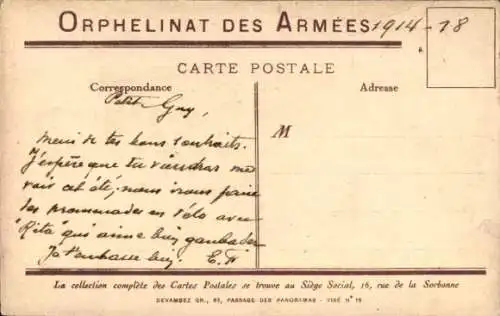 ORPHELINAT DES ARMÉES 1914-18
CARTE POSTALE
Correspondance
Adresse
Petit Guy,
M
Merci de tes bons souhaits.
J'espère que tu viendras me
voir cet été; nous irons faire
des promenades en vélo avec
"Rita" qui aime bien gambader
Je t'embrasse bien. E. F
La collection complète des Cartes Postales se trouve au Siège Social, 16, rue de la Sorbonne
DEVAMBEZ GR., 63, PASSAGE DES PANORAMAS - VISÉ N° 19